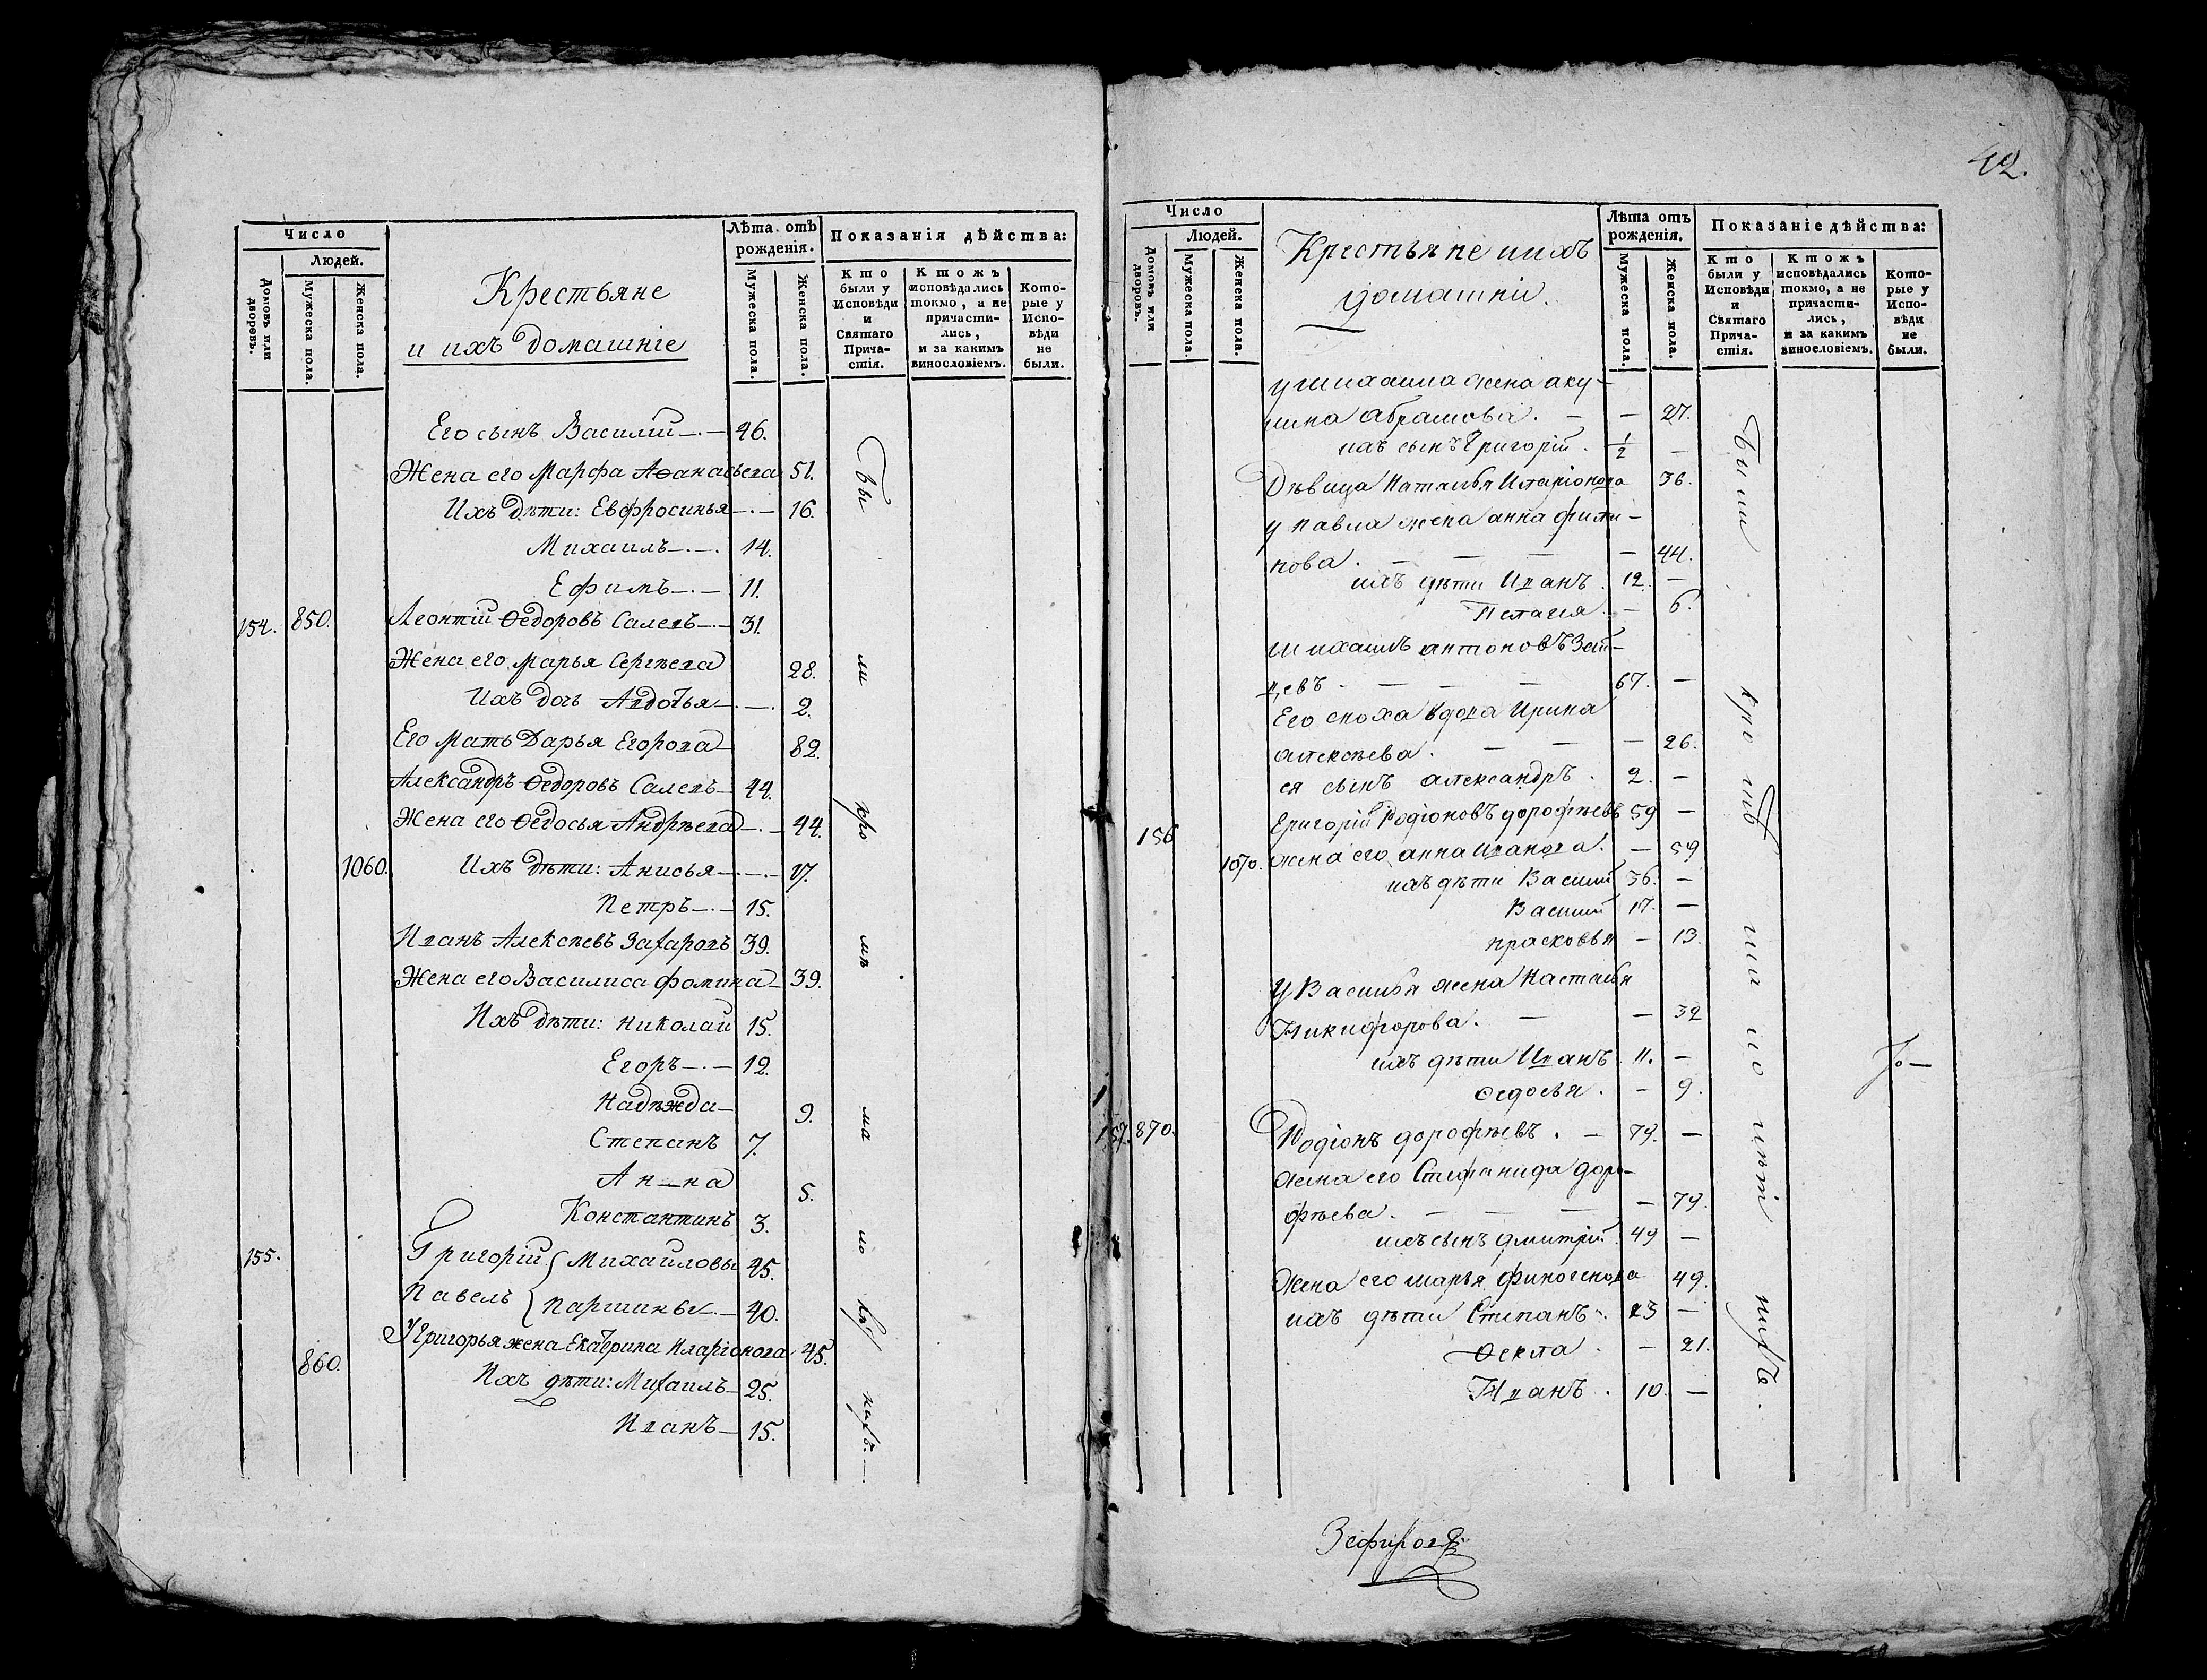 Число
Людей.
Домовъ или дворовъ.
Мужеска пола.
Женска пола.
Крестьяне
и ихъ домашніе
Лѣта отъ рожденія.
Мужеска пола.
Женска пола.
Показанія дѣйства:
Кто были у Исповѣди и Святаго Причастія.
Ктожъ исповѣдались токмо, а не причастились, и за какимъ винословіемъ.
Которые у Исповѣди не были.
Его сынъ Василій 46.
Жена его Марфа Аѳанасьева 51.
Ихъ дѣти: Евфросинья 16.
Михаилъ 14.
Ефимъ 11.
154. 850. Леонтій Ѳедоровъ Салевъ 31.
Жена его Марья Сергѣева 28.
Ихъ дочь Авдотья 2.
Его мать Дарья Егорова 82.
Александръ Ѳедоровъ Салевъ 44.
Жена его Ѳедосья Андрѣева 44.
1060. Ихъ дѣти: Анисья 17.
Петръ 15.
Иванъ Алексѣевъ Захаровъ 39.
Жена его Василиса Фомина 39.
Ихъ дѣти: Николай 15.
Егоръ 12.
Надѣжда 9.
Степанъ 7.
Анна 5.
Константинъ 3.
155. Григорій Михайловы 45.
Павелъ Паршины 40.
У Григорья жена Екатерина Иларіонова 45.
860. Ихъ дѣти: Михаилъ 25.
Иванъ 15.
Бы ли кро мѣ ма ло
42.
Число
Людей.
Домовъ или дворовъ.
Мужеска пола.
Женска пола.
Крестьяне и ихъ
домашніи.
Лѣта отъ рожденія.
Мужеска пола.
Женска пола.
Показаніе дѣйства:
Кто были у Исповѣди и Святаго Причастія.
Ктожъ исповѣдались токмо, а не причастились, и за какимъ винословіемъ.
Которые у Исповѣди не были.
у Михаила жена аку-
лина Абрамова. — 27.
ихъ сынъ Григорій. 1/2 —
Дѣвица Наталья Иларіонова 36.
у Павла жена анна фили-
пова. — 44.
ихъ дѣти Иванъ. 12. —
Пелагея. — 6.
Михаилъ антоновъ Зай-
цевъ 67. —
Его сноха вдова Ирина
алексѣева. — 26.
ея сынъ александръ. 2. —
156 Григорій Родіоновъ дорофѣевъ 59 —
1070. жена его анна Иванова. — 59
ихъ дѣти Василій 36. —
Василій 17. —
прасковья — 13.
У Василья жена Наталья
Никифорова. — 32
ихъ дѣти Иванъ 11. —
Ѳедосья. — 9.
157. 870. Родіонъ дорофѣевъ. 79. —
жена его Стефанида доро-
фѣева. — 79.
ихъ сынъ дмитрій. 49 —
Жена его марья финогенова 49.
ихъ дѣти Степанъ. 23 —
Ѳекла. — 21.
Иванъ. 10 —
Были кромѣ